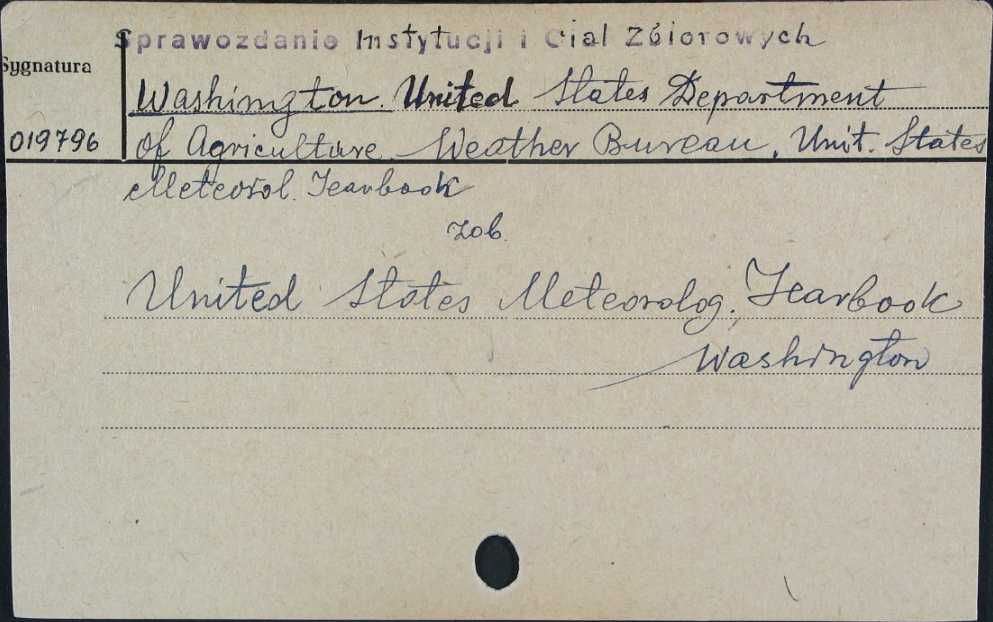 Sprawozdanie Instytucji i Ciał Zbiorowych
Sygnatura
Washington. United States Department
019796
of Agriculture. Weather Bureau, Unit. States
Meteorol. Yearbook
zob.
United States Meteorolog. Yearbook
Washington